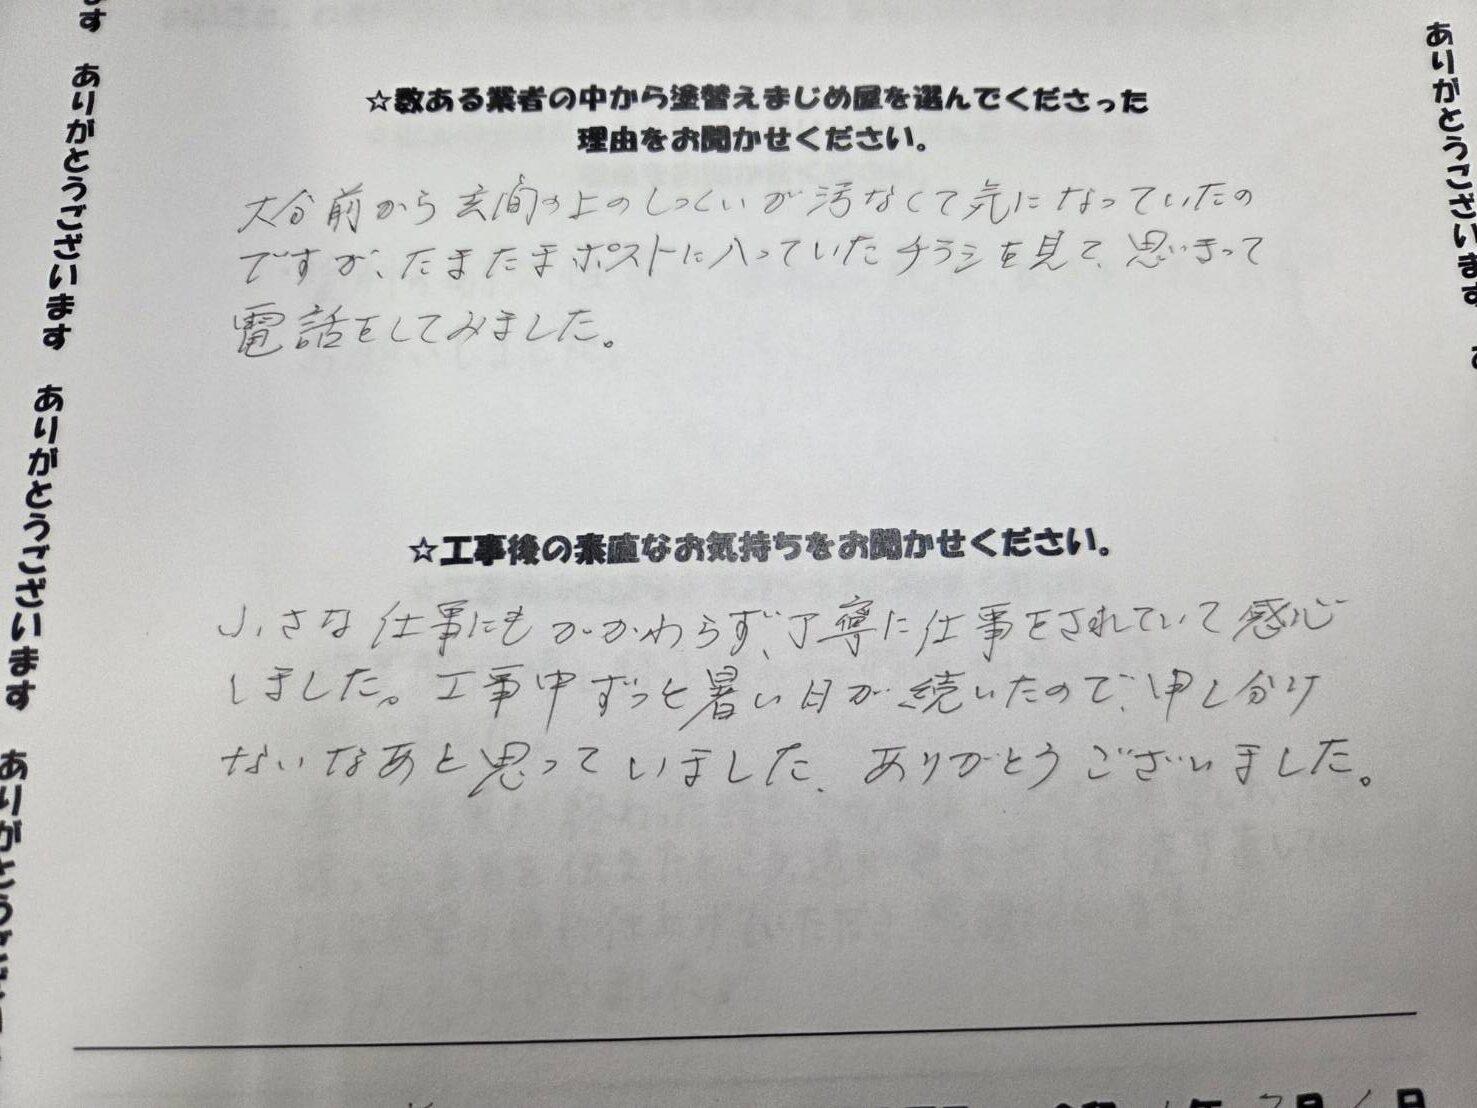 ☆数ある業者の中から塗替えまじめ屋を選んでくださった
理由をお聞かせください。
大分前から玄関の上のしっくいが汚なくて気になっていたの
ですが、たまたまポストに入っていたチラシを見て、思いきって
電話をしてみました。
☆工事後の素直なお気持ちをお聞かせください。
小さな仕事にもかかわらず、丁寧に仕事をされていて感心
しました。工事中ずっと暑い日が続いたので、申し分け
ないなあと思っていました。ありがとうございました。
年 月 日
す ありがとうございます ありがとうございます ありがとうござい
ありがとうございます